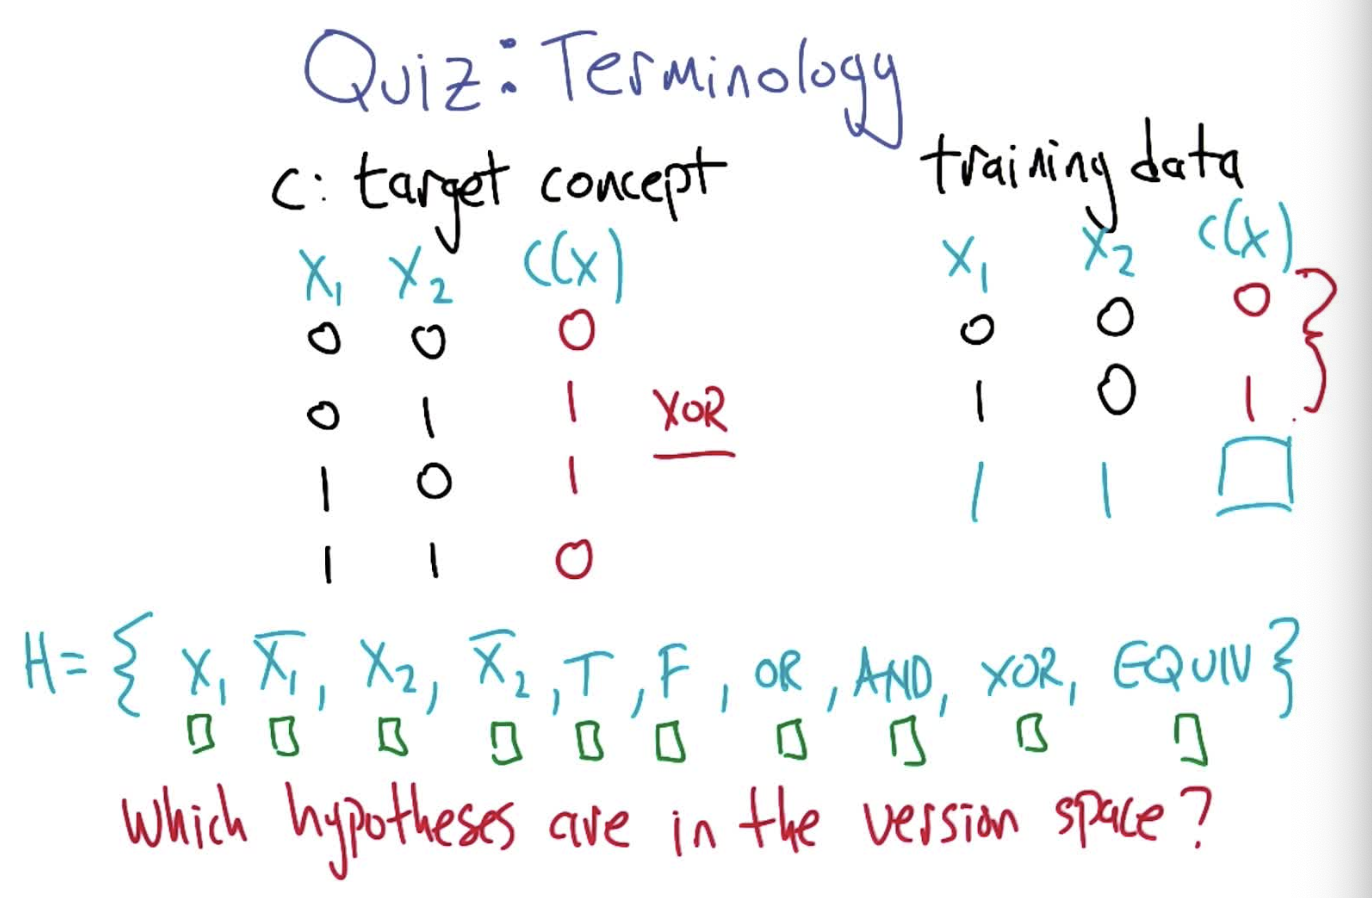 Quiz: Terminology
c: target concept
training data
X₁ X₂ C(X)
0 0 0
0 1 1
1 0 1
1 1 0
XOR
X₁ X₂ C(X)
0 0 0 }
1 0 1
1 1 □
H = { X₁, X̅₁, X₂, X̅₂, T, F, OR, AND, XOR, EQUIV }
Which hypotheses are in the version space?